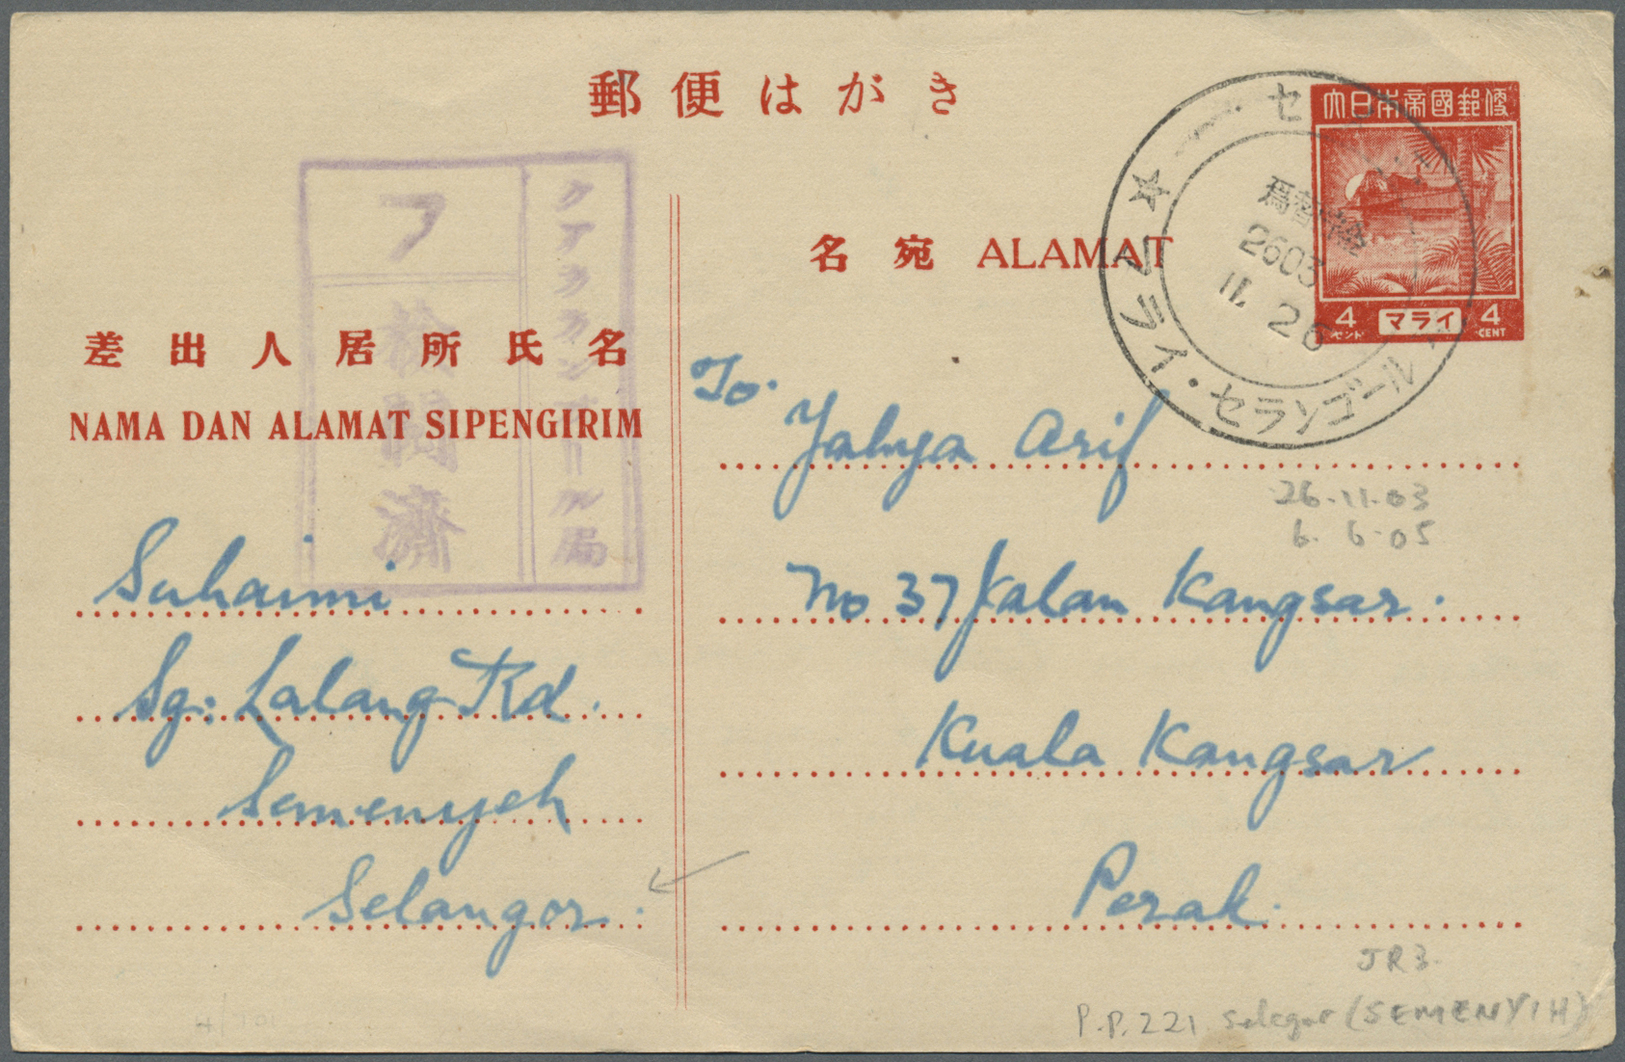 郵便はがき
大日本帝國郵便
4 マライ 4
セント CENT
セ
マライ・セランゴール
爲替貯金
2603
11. 26
クアラランプール局
フ
検閲済
名宛 ALAMAT
差出人居所氏名
NAMA DAN ALAMAT SIPENGIRIM
To. Yahya Arif
No 37 Jalan Kangsar.
Kuala Kangsar
Perak.
Suhaimi
Sg: Lalang Rd.
Semenyeh
Selangor.
26.11.03
6.6.05
JR3.
P.P.221 Selegor (SEMENYIH)